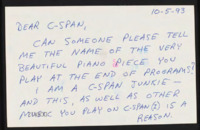 10-5-93
DEAR C-SPAN,
CAN SOMEONE PLEASE TELL
ME THE NAME OF THE VERY
BEAUTIFUL PIANO PIECE YOU
PLAY AT THE END OF PROGRAMS?
I AM A C-SPAN JUNKIE —
AND THIS, AS WELL AS OTHER
MUSIC YOU PLAY ON C-SPAN (2) IS A
REASON.